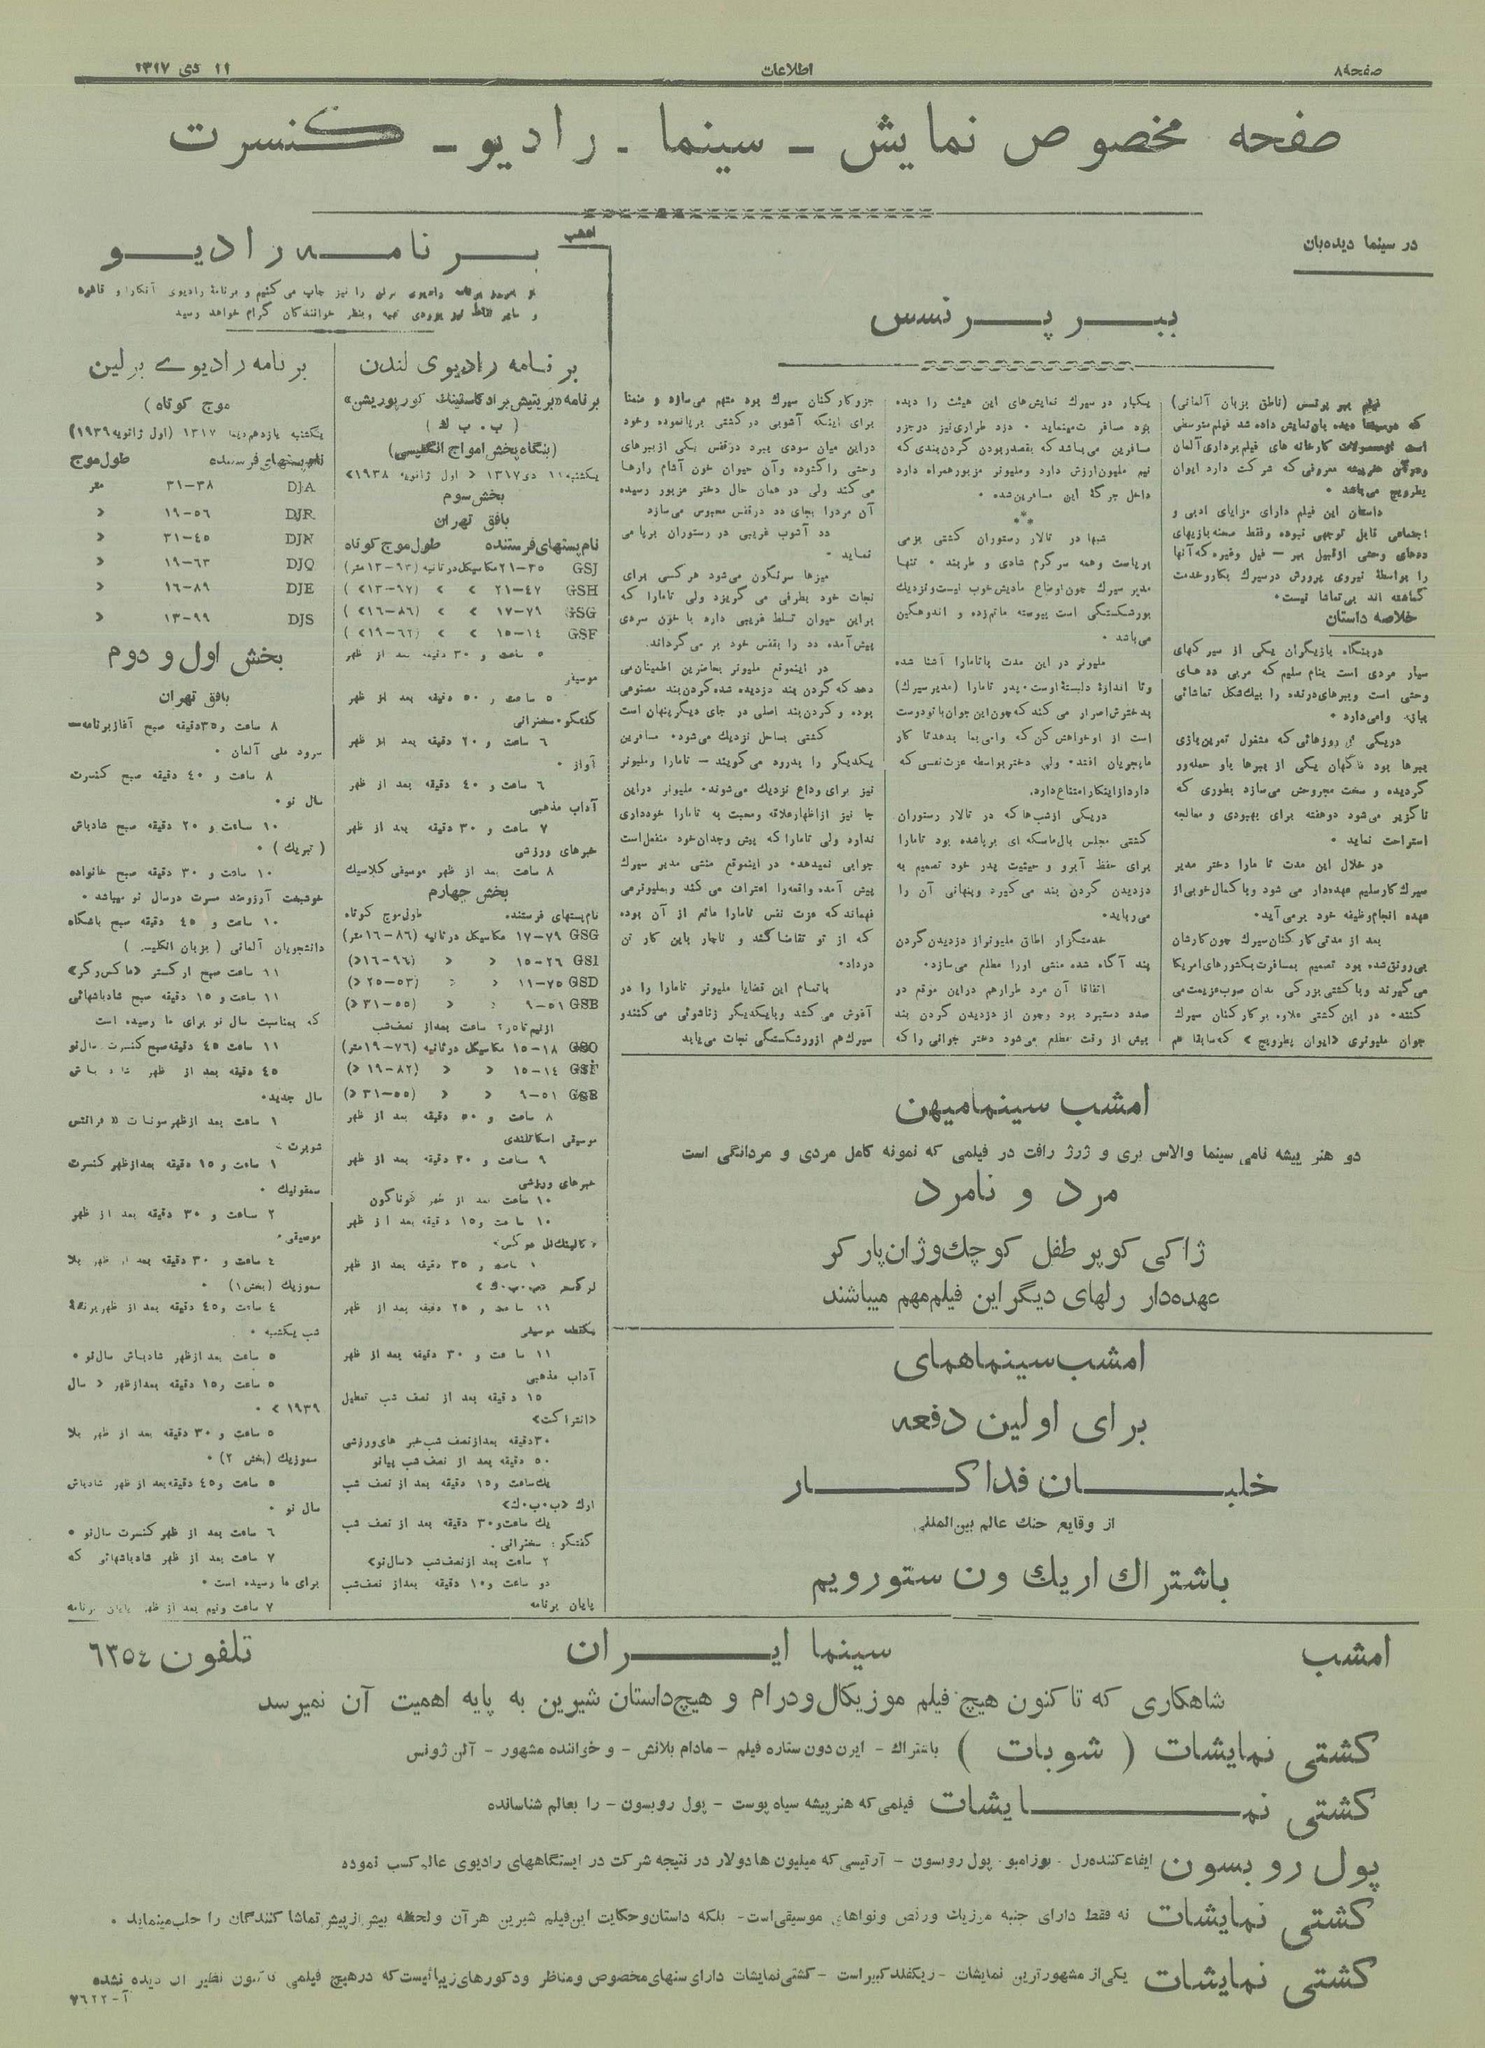 صفحه۸
اطلاعات
۱۱ دی ۱۳۱۷
صفحه مخصوص نمایش - سینما - رادیو - کنسرت
در سینما دیده‌بان
ببر پرنسس
فیلم ببر پرنسس (ناطق بزبان آلمانی)
که در سینما دیده بان نمایش داده شد فیلم متوسطی
است از محصولات کارخانه های فیلم برداری آلمان
هنرپیشه معروفی که شرکت دارد ایوان
پطرویچ می‌باشد ۰
داستان این فیلم دارای مزایای ادبی و
اجتماعی قابل توجهی نبوده وفقط صحنه بازیهای
دده‌های وحشی ازقبیل ببر - فیل وغیره که آنها
را بواسطهٔ نیروی پرورش درسیرك بکاروخدمت
گماشته اند بی‌تماشا نیست۰
خلاصه داستان
دربنگاه بازیگران یکی از سیر کهای
سیار مردی است بنام سلیم که مربی دد های
وحشی است وببرهای‌درنده را بیك‌شکل تماشائی
ببازی وامی‌دارد ۰
دریکی از روزهائی که مشغول تمرین‌بازی
ببرها بود ناگهان یکی از ببرها باو حمله‌ور
گردیده و سخت مجروحش می‌سازد بطوری که
ناگزیر می‌شود دوهفته برای بهبودی و معالجه
استراحت نماید ۰
در خلال این مدت تا مارا دختر مدیر
سیرك کارسلیم عهده‌دار می شود وبا کمال‌خوبی‌از
عهده انجام‌وظیفه خود برمی‌آید۰
بعد از مدتی کار کنان سیرك چون‌کارشان
بی‌رونق‌شده بود تصمیم بمسافرت بکشورهای‌امریکا
می‌گیرند وبا کشتی بزر کی بدان صوب‌عزیمت‌می
کنند۰ در این کشتی علاوه بر کار کنان سیرك
جوان ملیونری «ایوان پطرویچ» که‌سابقا هم
یکبار در سیرك نمایش‌های این هیئت را دیده
بود مسافرت‌مینماید ۰ دزد طراری‌نیز درجزو
مسافرین می‌باشد که بقصدربودن گردن‌بندی که
نیم ملیون‌ارزش دارد وملیونر مزبورهمراه دارد
داخل جرگهٔ این مسافرین‌شده ۰
***
شبها در تالار رستوران کشتی بزمی
برپاست وهمه سرگرم شادی و طربند ۰ تنها
مدیر سیرك چون‌اوضاع مادیش‌خوب نیست‌ونزدیك
بورشکستگی است پیوسته ماتم‌زده و اندوهگین
می‌باشد ۰
ملیونر در این مدت باتامارا آشنا شده
وتا اندازهٔ دلبستهٔ اوست۰ پدر تامارا (مدیرسیرك)
بدخترش‌اصرار می کند که‌چون‌این جوان‌باتودوست
است از او خواهش‌کن که وامی‌بما بدهدتا کار
مابجریان افتد۰ ولی دختربواسطه عزت‌نفسی که
دارد‌ازاینکارامتناع‌دارد.
دریکی ازشب‌ها که در تالار رستوران
کشتی مجلس بال‌ماسکه ای برپاشده بود تامارا
برای حفظ آبرو و حیثیت پدر خود تصمیم به
دزدیدن گردن بند می‌گیرد وپنهانی آن را
می‌رباید۰
خدمتگزار اطاق ملیونراز دزدیدن گردن
بند آگاه شده منشی اورا مطلع می‌سازد۰
اتفاقا آن مرد طرارهم دراین موقع در
صدد دستبرد بود وچون از دزدیدن گردن بند
پیش از وقت مطلع می‌شود دختر جوانی را که
جزو کارکنان سیرك بود متهم می‌سازد و ضمنا
برای اینکه آشوبی در کشتی برپانموده وخود
دراین میان سودی ببرد درقفس یکی ازببرهای
وحشی را گشوده وآن حیوان خون آشام رارها
می کند ولی در همان حال دختر مزبور رسیده
آن مردرا بجای دد درقفس محبوس می‌سازد
دد آشوب غریبی در رستوران برپا می
نماید ۰
میزها سرنگون می‌شود هر کسی برای
نجات خود بطرفی می گریزد ولی تامارا که
براین حیوان تسلط غریبی دارد با خون سردی
پیش‌آمده دد را بقفس خود بر می‌گرداند.
در اینموقع ملیونر بحاضرین اطمینان‌می
دهد که گردن بند دزدیده شده گردن‌بند مصنوعی
بوده و گردن‌بند اصلی در جای دیگرپنهان است
کشتی بساحل نزدیك می‌شود۰ مسافرین
یکدیگر را بدرود می‌گویند - تامارا وملیونر
نیز برای وداع نزدیك می‌شوند۰ ملیونر دراین
جا نیز ازاظهارعلاقه ومحبت به تامارا خودداری
ندارد ولی تامارا که پیش وجدان‌خود منفعل‌است
جوابی نمیدهد۰ در اینموقع منشی مدیر سیرك
پیش آمده واقعه‌را اعتراف می کند وبملیونرمی
فهماند که عزت نفس تامارا مانع از آن بوده
که از تو تقاضا کند و ناچار باین کار تن
درداد۰
باتمام این قضایا ملیونر تامارا را در
آغوش می کشد وبایکدیگر زناشوئی می‌کنندو
سیرك‌هم ازورشکستگی نجات می‌یابد
امشب سینما‌میهن
دو هنر پیشه نامی سینما والاس بری و ژرژ رافت در فیلمی که نمونه کامل مردی و مردانگی است
مرد و نامرد
ژاکی کوپر طفل کوچك‌وژان‌پارکر
عهده‌دار رلهای دیگر این فیلم‌مهم میباشند
امشب‌سینماهمای
برای اولین دفعه
خلبان فداکار
از وقایع جنك عالم بین‌المللی
باشتراك اریك ون ستورویم
امشب
برنامه رادیو
برنامه رادیوی برلن را نیز چاپ می کنیم و برنامهٔ رادیوی آنکارا و قاهره
و سایر نقاط نیز بزودی تهیه وبنظر خوانندگان گرام خواهد رسید
برنامه رادیوی لندن
برنامه «بریتیش‌برادکاستینك کورپوریشن»
(ب . ب ك)
(بنگاه‌پخش‌امواج انگلیسی)
یکشنبه۱۱ دی۱۳۱۷ «اول ژانویه ۱۹۳۸»
بخش سوم
بافق تهران
نام‌پستهای فرستنده طول موج کوتاه
GSJ ۲۱-۳۵مکاسیکل‌درثانیه (۹۳-۱۳متر)
GSH ۲۱-۴۷ » » (۹۷-۱۳»)
GSG ۱۷-۷۹ » » (۸۶-۱۶»)
GSF ۱۵-۱۴ » » (۸۲-۱۹»)
۵ ساعت و ۳۰ دقیقه بعد از ظهر
موسیقی
۵ ساعت و ۵۰ دقیقه بعد از ظهر
گفتگو۰ سخنرانی
۶ ساعت و ۲۰ دقیقه بعد از ظهر
آواز ۰
۶ ساعت و ۴۰ دقیقه بعد از ظهر
آداب مذهبی
۷ ساعت و ۳۰ دقیقه بعد از ظهر
خبرهای ورزشی
۸ ساعت بعد از ظهر موسیقی کلاسیك
بخش چهارم
نام‌پستهای فرستنده طول‌موج کوتاه
GSG ۱۷-۷۹ مکاسیکل درثانیه (۸۶-۱۶متر)
GSI ۱۵-۲۶ » » (۹۶-۱۶»)
GSD ۱۱-۷۵ » » (۵۳-۲۵»)
GSB ۹-۵۱ » » (۵۵-۳۱»)
ازنیم‌تا۲٫۵ ساعت بعداز نصف‌شب
GSO ۱۵-۱۸ مکاسیکل درثانیه (۷۶-۱۹متر)
GSF ۱۵-۱۴ » » (۸۲-۱۹»)
GSB ۹-۵۱ » » (۵۵-۳۱»)
۸ ساعت و ۵۰ دقیقه بعد از ظهر
موسیقی اسکاتلندی
۹ ساعت و ۳۰ دقیقه بعد از ظهر
خبرهای ورزشی
۱۰ ساعت بعد از ظهر گوناگون
۱۰ ساعت و۱۵ دقیقه بعد از ظهر
ساعت و ۳۵ دقیقه بعد از ظهر
ارکستر «ب۰ب۰ك»
۱۱ ساعت و ۲۵ دقیقه بعد از ظهر
یکقطعه موسیقی
۱۱ ساعت و ۳۰ دقیقه بعد از ظهر
آداب مذهبی
۱۵ دقیقه بعد از نصف شب تعطیل
«انتراکت»
۳۰دقیقه بعدازنصف شب‌خبر های‌ورزشی
۵۰ دقیقه بعد از نصف شب پیانو
یك‌ساعت و۱۵ دقیقه بعد از نصف شب
ارك «ب۰ب۰ك»
یك ساعت‌و۳۰ دقیقه بعد از نصف شب
گفتگو؛ سخنرانی .
۲ ساعت بعد ازنصف‌شب «سال‌نو»
دو ساعت و۱۰ دقیقه بعداز نصف‌شب
پایان برنامه
برنامه رادیوی برلین
موج کوتاه)
یکشنبه یازدهم‌دیماه ۱۳۱۷ (اول ژانویه۱۹۳۹)
نام‌پستهای‌فرستنده طول‌موج
DJA ۳۱-۳۸ متر
DJR ۱۹-۵۶ »
DJN ۳۱-۴۵ »
DJQ ۱۹-۶۳ »
DJE ۱۶-۸۹ »
DJS ۱۳-۹۹ »
بخش اول و دوم
بافق تهران
۸ ساعت و۳۵دقیقه صبح آغازبرنامه-
سرود ملی آلمان ۰
۸ ساعت و ۴۰ دقیقه صبح کنسرت
سال نو ۰
۱۰ ساعت و ۲۰ دقیقه صبح شادباش
(تبریك) ۰
۱۰ ساعت و ۳۰ دقیقه صبح خانواده
خوشبخت آرزومند مسرت درسال نو میباشد ۰
۱۰ ساعت و ۴۵ دقیقه صبح باشگاه
دانشجویان آلمانی (بزبان انگلیسی)
۱۱ ساعت صبح ارکستر «ماکس‌رگر»
۱۱ ساعت و ۱۵ دقیقه صبح شادباشهائی
که بمناسبت سال نو برای ما رسیده است
۱۱ ساعت و ۴۵ دقیقه‌صبح کنسرت سال‌نو
۴۵ دقیقه بعد از ظهر شادباش
سال جدید۰
۱ ساعت بعد ازظهرسونات «فرانتس
شوبرت»
۱ ساعت و ۱۵ دقیقه بعدازظهر کنسرت
سمفونیك ۰
۲ ساعت و ۳۰ دقیقه بعد از ظهر
موسیقی۰
۴ ساعت و ۳۰ دقیقه بعد از ظهر بلا
سموزیك (بخش۱) ۰
۴ ساعت و۴۵ دقیقه بعد از ظهربرنامهٔ
شب یکشنبه ۰
۵ ساعت بعد ازظهر شادباش سال‌نو ۰
۵ ساعت و۱۵ دقیقه بعدازظهر «سال
۱۹۳۹» ۰
۵ ساعت و ۳۰ دقیقه بعد از ظهر بلا
سموزیك (بخش ۲) ۰
۵ ساعت و۴۵ دقیقه‌بعد از ظهر شادباش
سال نو ۰
۶ ساعت بعد از ظهر کنسرت سال‌نو ۰
۷ ساعت بعد از ظهر شادباشهائی که
برای ما رسیده است ۰
۷ ساعت ونیم بعد از ظهر پایان برنامه
امشب
سینما ایران
تلفون ۶۲۵۴
شاهکاری که تا کنون هیچ فیلم موزیکال‌ودرام و هیچ‌داستان شیرین به پایه اهمیت آن نمیرسد
کشتی نمایشات (شوبات) باشتراك - ایرن دون ستاره فیلم - مادام بلانش - و خواننده مشهور - آلن ژونس
کشتی نمایشات فیلمی که هنرپیشه سیاه پوست - پول روبسون - را بعالم شناسانده
پول روبسون ایفاءکننده‌رل - بوزامبو - پول روبسون - آرتیسی که میلیون هادولار در نتیجه شرکت در ایستگاههای رادیوی عالم کسب نموده
کشتی نمایشات نه فقط دارای جنبه موزیك ورقص ونواهای موسیقی‌است- بلکه داستان‌وحکایت این‌فیلم شیرین هرآن ولحظه بیش‌ازپیش‌تماشا کنندگان را جلب‌مینماید ۰
کشتی نمایشات یکی‌از مشهورترین نمایشات - ریکفلدکبیراست - کشتی‌نمایشات دارای سنهای‌مخصوص ومناظر ودکورهای‌زیبائیست‌که درهیچ فیلمی تاکنون نظیر آن دیده نشده
آ-۷۶۲۲